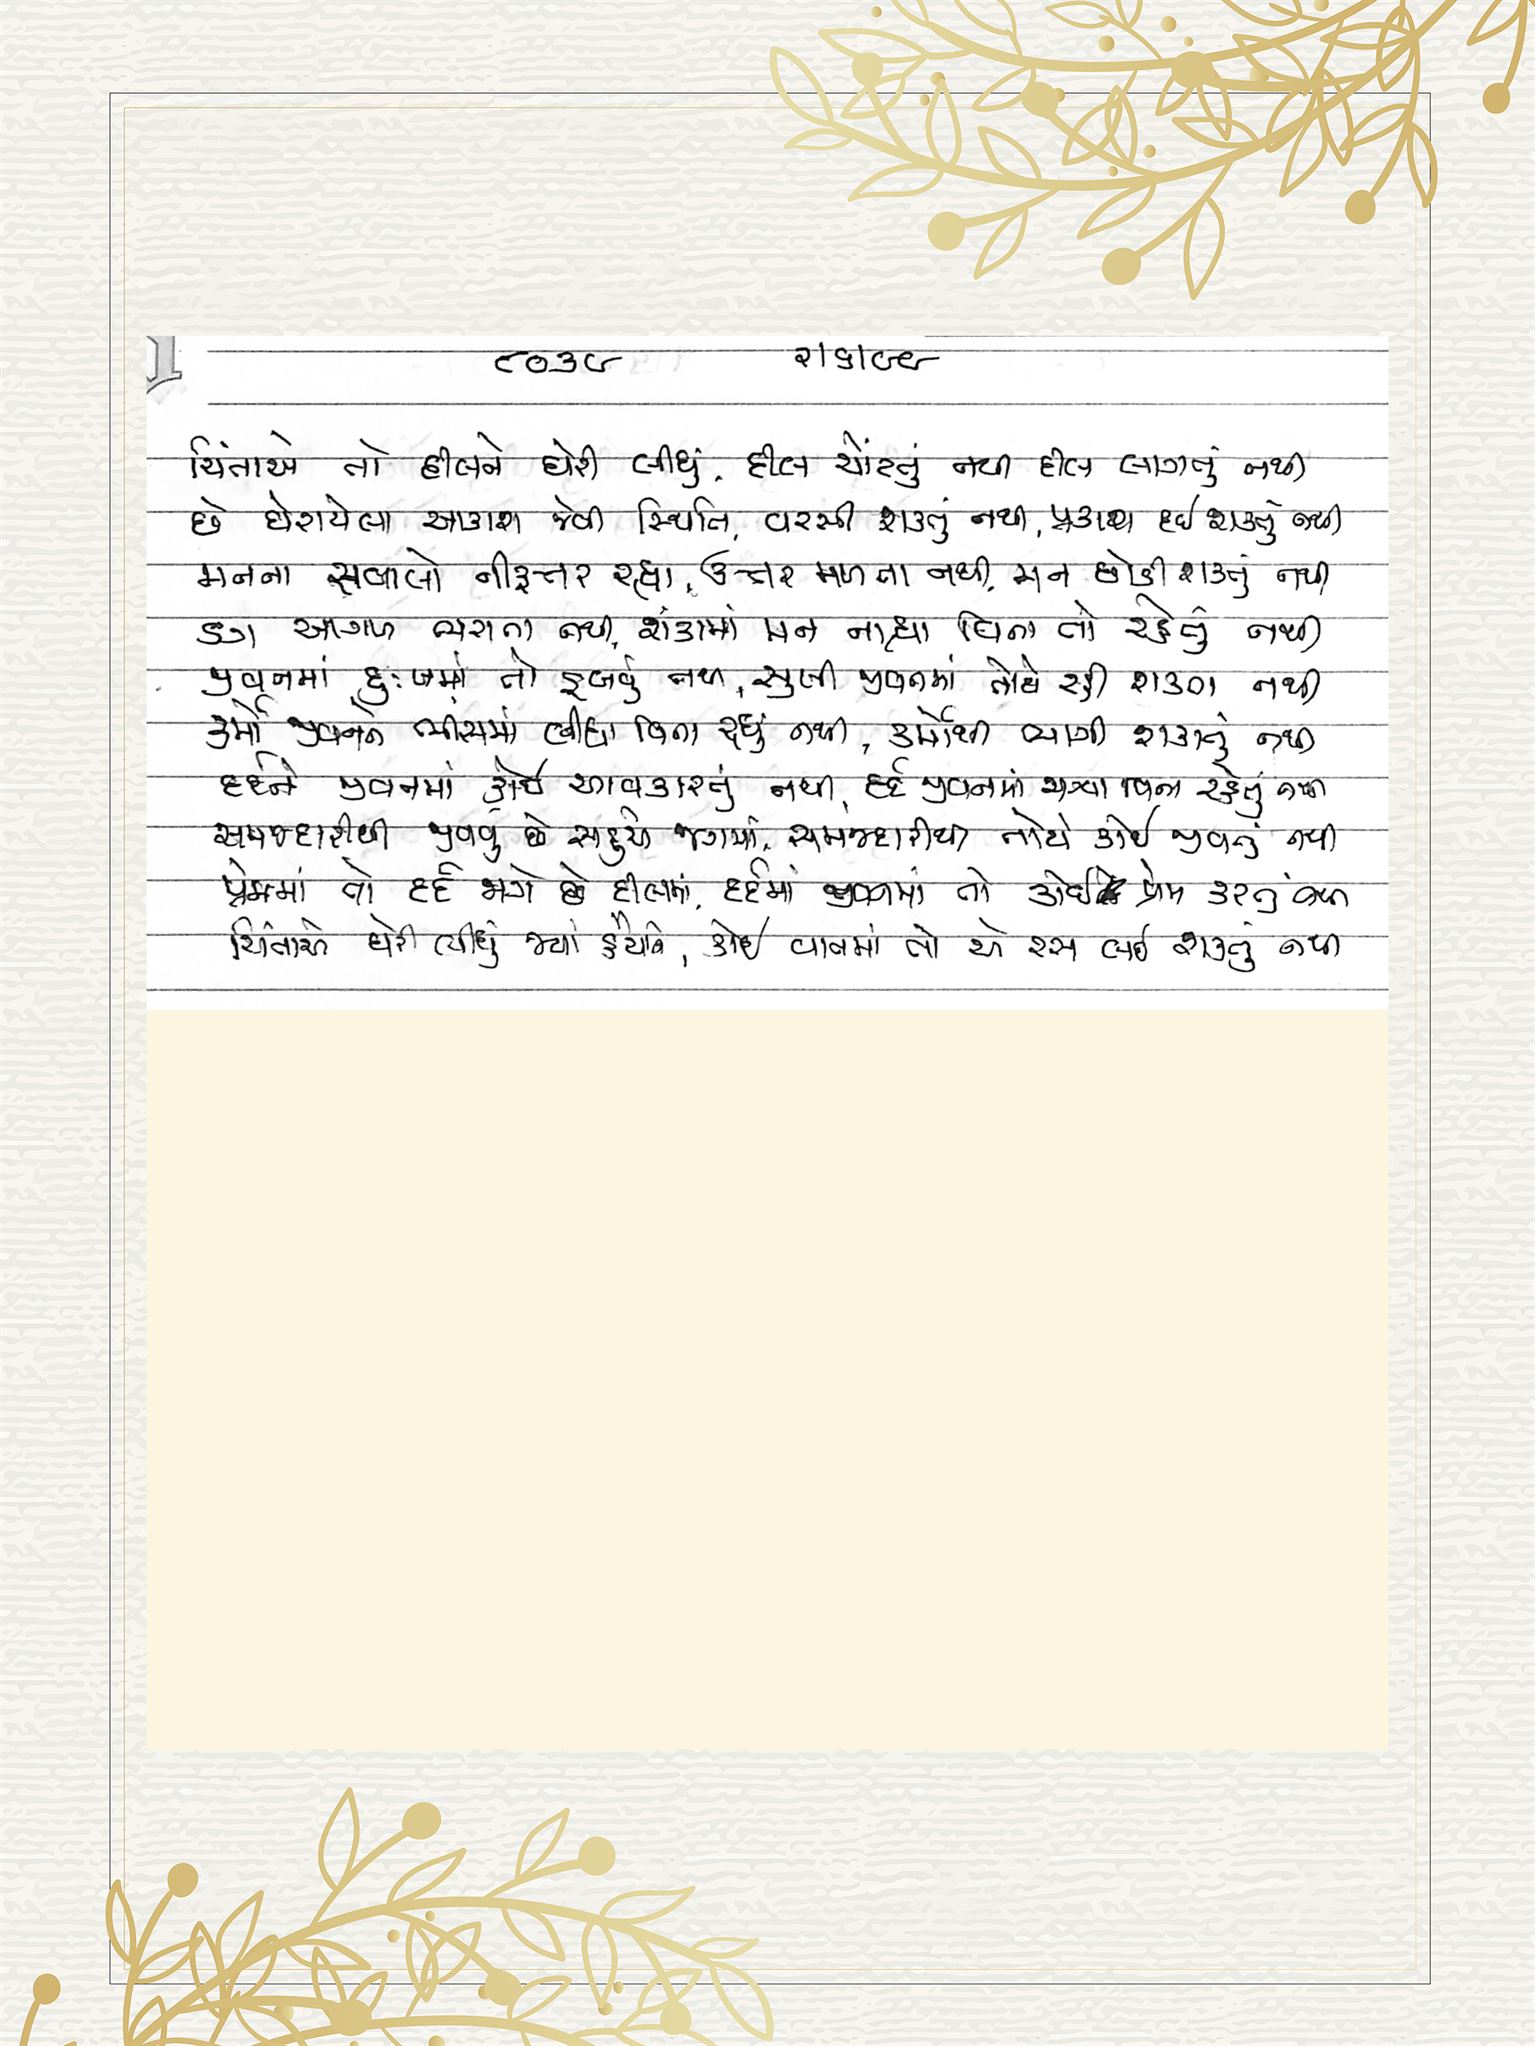 ૮૦૩૮ ૨।૬।૯૯
ચિંતાએ તો દીલને ઘેરી લીધું. દીલ ચોંટતું નથી દીલ લાગતું નથી
છે ઘેરાયેલા આકાશ જેવી સ્થિતિ, વરસી શકતું નથી, પ્રકાશ દઈ શકતું નથી
મનના સવાલો નીરૂત્તર રહ્યા, ઉત્તર મળતા નથી, મન છોડી શકતું નથી
ડગ આગળ વધતા નથી, શંકામાં મન નાહ્યા વિના તો રહેતું નથી
જીવનમાં દુઃખમાં તો ડૂબવું નથી, સુખી જીવનમાં તોયે રહી શકતા નથી
કર્મો જીવનને ભીંસમાં લીધા વિના રહ્યું નથી, કર્મોથી ભાગી શકાતું નથી
દર્દને જીવનમાં કોઈ આવકારતું નથી, દર્દ જીવનમાં મળ્યા વિના રહેતું નથી
સમજદારીથી જીવવું છે સહુએ જગમાં, સમજદારીથી તોયે કોઈ જીવતું નથી
પ્રેમમાં તો દર્દ જાગે છે દીલમાં, દર્દમાં જીવનમાં તો કોઈ પ્રેમ કરતું નથી
ચિંતાએ ઘેરી લીધું જ્યાં હૈયાને, કોઈ વાતમાં તો એ રસ લઈ શકતું નથી